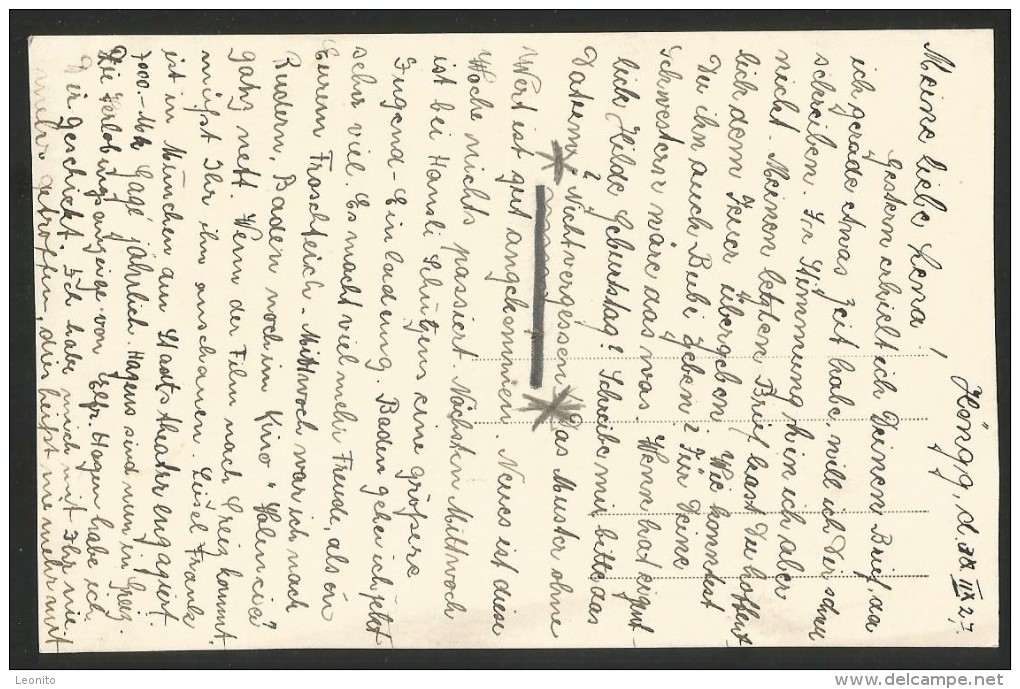 Höngg, d. IX. 27.
Meine liebe Lena!
Gestern erhielt ich Deinen Brief, da
ich gerade etwas Zeit habe, will ich Dir schnell
schreiben. In Stimmung hein ich aber
nicht. Meinen letzten Brief hast Du hoffent-
lich dem Feuer übergeben. Wie konntest
Du ihn auch Bubi zeigen? Für Deine
Schwestern wäre das was. Wenn hat eigent-
lich Hilde Geburtstag? Schreibe mir bitte das
Datum? Nicht vergessen! Das Muster ohne
Wert ist gut angekommen. Neues ist diese
Woche nichts passiert. Nächsten Mittwoch
ist bei Hansli Schützens eine grössere
Jugend-Einladung. Baden gehe ich jetzt
sehr viel. Es macht viel mehr Freude, als in
Eurem Froschteich. Mittwoch war ich nach
Rudern, Baden noch im Kino "Valencia"
ganz nett. Wenn der Film nach Greiz kommt.
müsst Ihr ihn anschauen. Liesel Frank
ist in München am Stadttheater engagiert
7000.- Mk Gage jährlich. Hagens sind nun in Greiz.
Die Verlobungsanzeige von Hagen habe ich
Dir geschickt. Ich habe mich mit Ihr nie
mehr getroffen, die beisst me mehr mit
Leonito